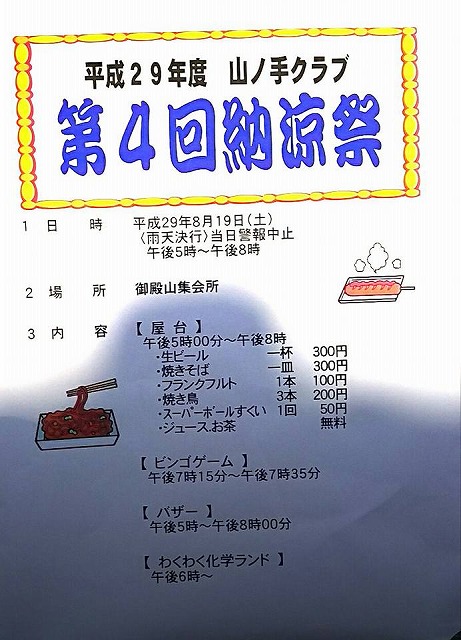 平成29年度 山ノ手クラブ
第4回納涼祭
1 日 時 平成29年8月19日(土)
〈雨天決行〉当日警報中止
午後5時～午後8時
2 場 所 御殿山集会所
3 内 容 【 屋 台 】
午後5時00分～午後8時
・生ビール 一杯 300円
・焼きそば 一皿 300円
・フランクフルト 1本 100円
・焼き鳥 3本 200円
・スーパーボールすくい 1回 50円
・ジュース.お茶 無料
【 ビンゴゲーム 】
午後7時15分～午後7時35分
【 バザー 】
午後5時～午後8時00分
【 わくわく化学ランド 】
午後6時～